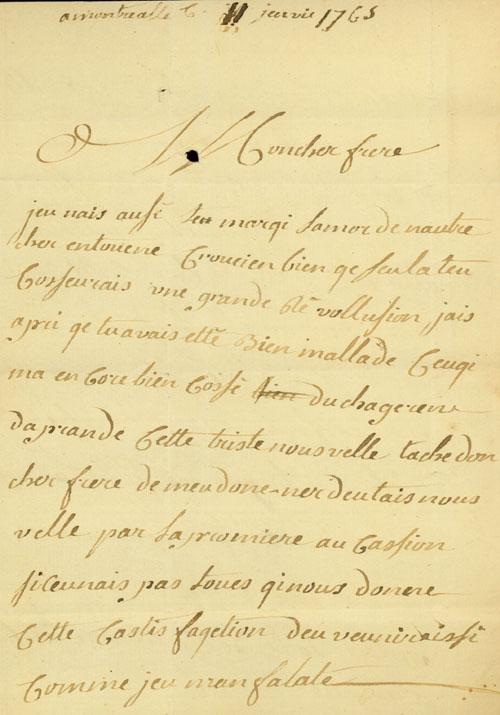 amontrealle C 11 jenvie 1765
Moncher frere
jeu nais ausé teu marqi lamor de nautre
cher entouene Croucien bien qe seula teu
Cosseurais une grande Révollusion jais
apri qe tu avais etté Bien mallade Ceuqi
ma en Core bien Cossé bien du chagerene
daprande Cette triste nousvelle tache don
cher frere de meu done-ner deu tais nous
velle par la promiere au Cassion
siceunais pas toues qi nous donere
Cette Castis fagetion deu veunir aissi
Comme jeu man falate